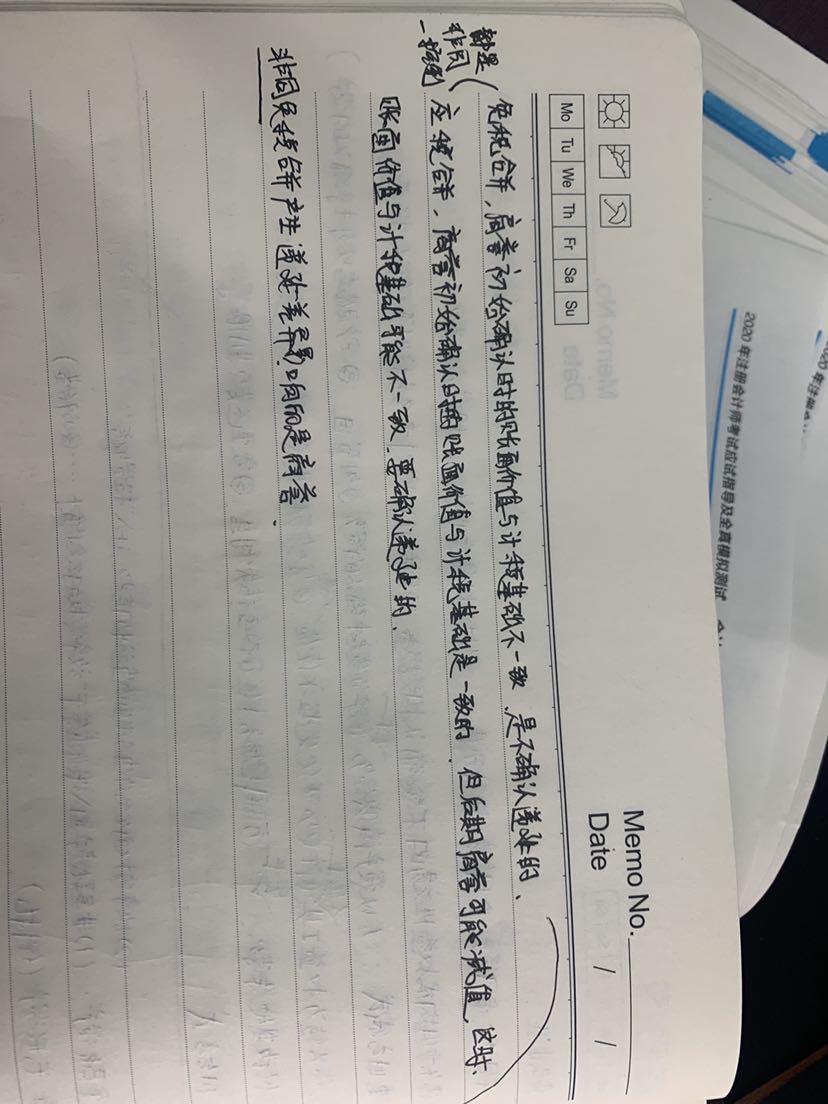 Memo No.
Date / /
Mo Tu We Th Fr Sa Su
都是
非同
一控制
免税合并，商誉初始确认时的账面价值与计税基础不一致，是不确认递延的、
应税合并，商誉初始确认时的账面价值与计税基础是一致的，但后期商誉可能减值，这时、
账面价值与计税基础可能不一致，要确认递延的、
非同免税合并产生递延差异影响的是商誉.
2020 年注册会计师考试应试指导及全真模拟测试